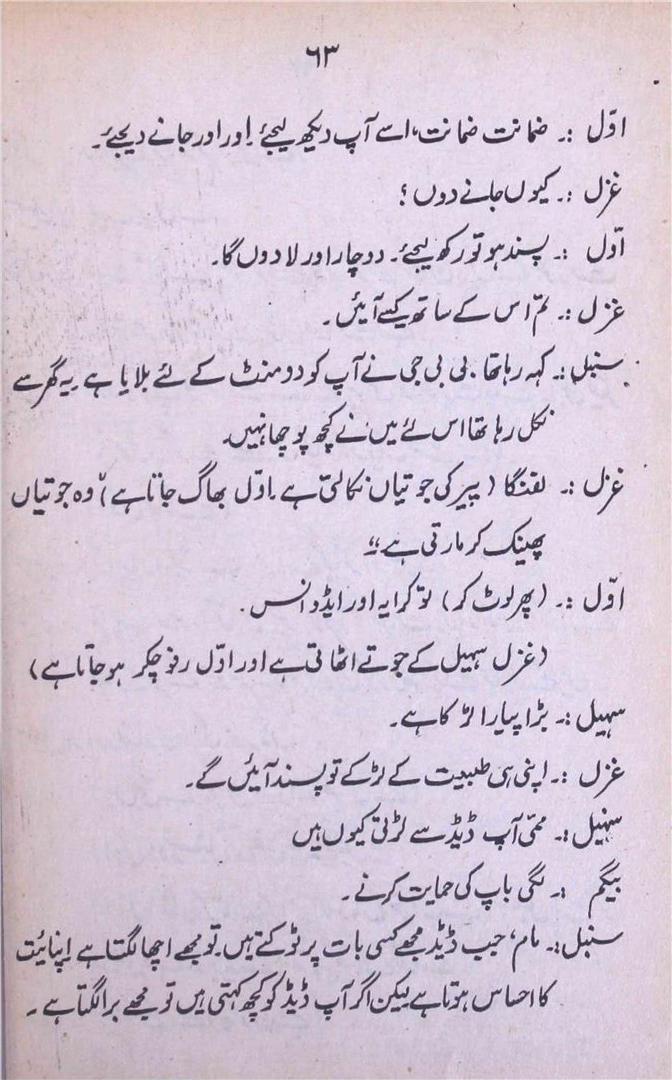 ۶۳
اوّل :۔ ضمانت ضمانت، اسے آپ دیکھ لیجئے۔ اور اور جانے دیجئے۔
غزل :۔ کیوں جانے دوں؟
اوّل :۔ پسند ہو تو رکھ لیجئے۔ دوچار اور لا دوں گا۔
غزل :۔ تم اس کے ساتھ کیسے آئیں۔
سنبل :۔ کہہ رہا تھا۔ بی بی جی نے آپ کو دو منٹ کے لئے بلایا ہے۔ یہ گھر سے
نکل رہا تھا اس لئے میں نے کچھ پوچھا نہیں۔
غزل :۔ لفنگا (پیر کی جوتیاں نکالتی ہے۔ اوّل بھاگ جاتا ہے) وہ جوتیاں
پھینک کر مارتی ہے،،
اوّل :۔ (پھر لوٹ کر) تو کرایہ اور ایڈوانس۔
(غزل سہیل کے جوتے اٹھاتی ہے اور اوّل رفوچکر ہو جاتا ہے)
سہیل :۔ بڑا پیارا لڑکا ہے۔
غزل :۔ اپنی ہی طبیعت کے لڑکے تو پسند آئیں گے۔
سنبل :۔ ممّی آپ ڈیڈ سے لڑتی کیوں ہیں
بیگم :۔ لگی باپ کی حمایت کرنے۔
سنبل :۔ مام، جب ڈیڈ مجھے کسی بات پر ٹوکتے ہیں۔ تو مجھے اچھا لگتا ہے اپنائیت
کا احساس ہوتا ہے لیکن اگر آپ ڈیڈ کو کچھ کہتی ہیں تو مجھے برا لگتا ہے۔